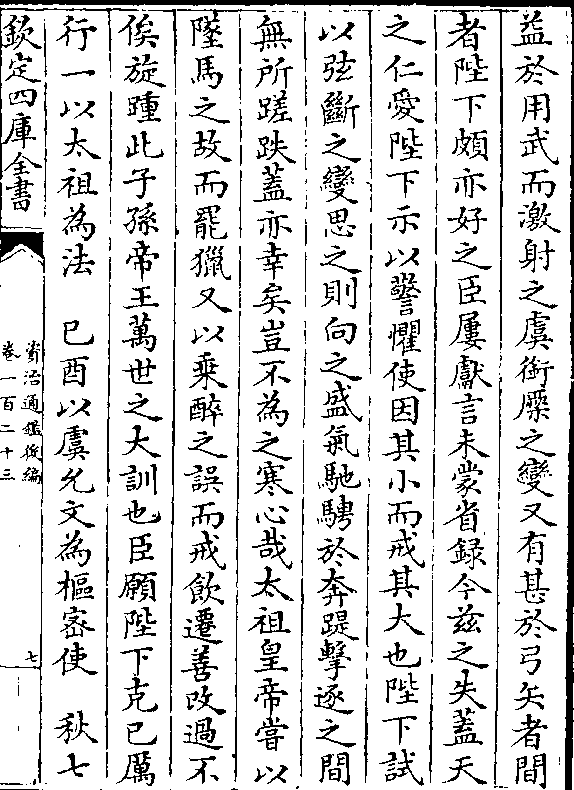 益於用武而激射之虞銜橜之變又有甚於弓矢者間
者陛下頗亦好之臣屢獻言未蒙省録今兹之失蓋天
之仁愛陛下示以警懼使因其小而戒其大也陛下試
以弦斷之變思之則向之盛氣馳騁於奔踶擊逐之間
無所蹉跌蓋亦幸矣豈不為之寒心哉太祖皇帝嘗以
墜馬之故而罷獵又以乗醉之誤而戒飲遷善改過不
俟旋踵此子孫帝王萬世之大訓也臣願陛下克已厲
行一以太祖為法　已酉以虞允文為樞宻使　秋七
欽定四庫全書
資治通鑑後編
卷一百二十三
七